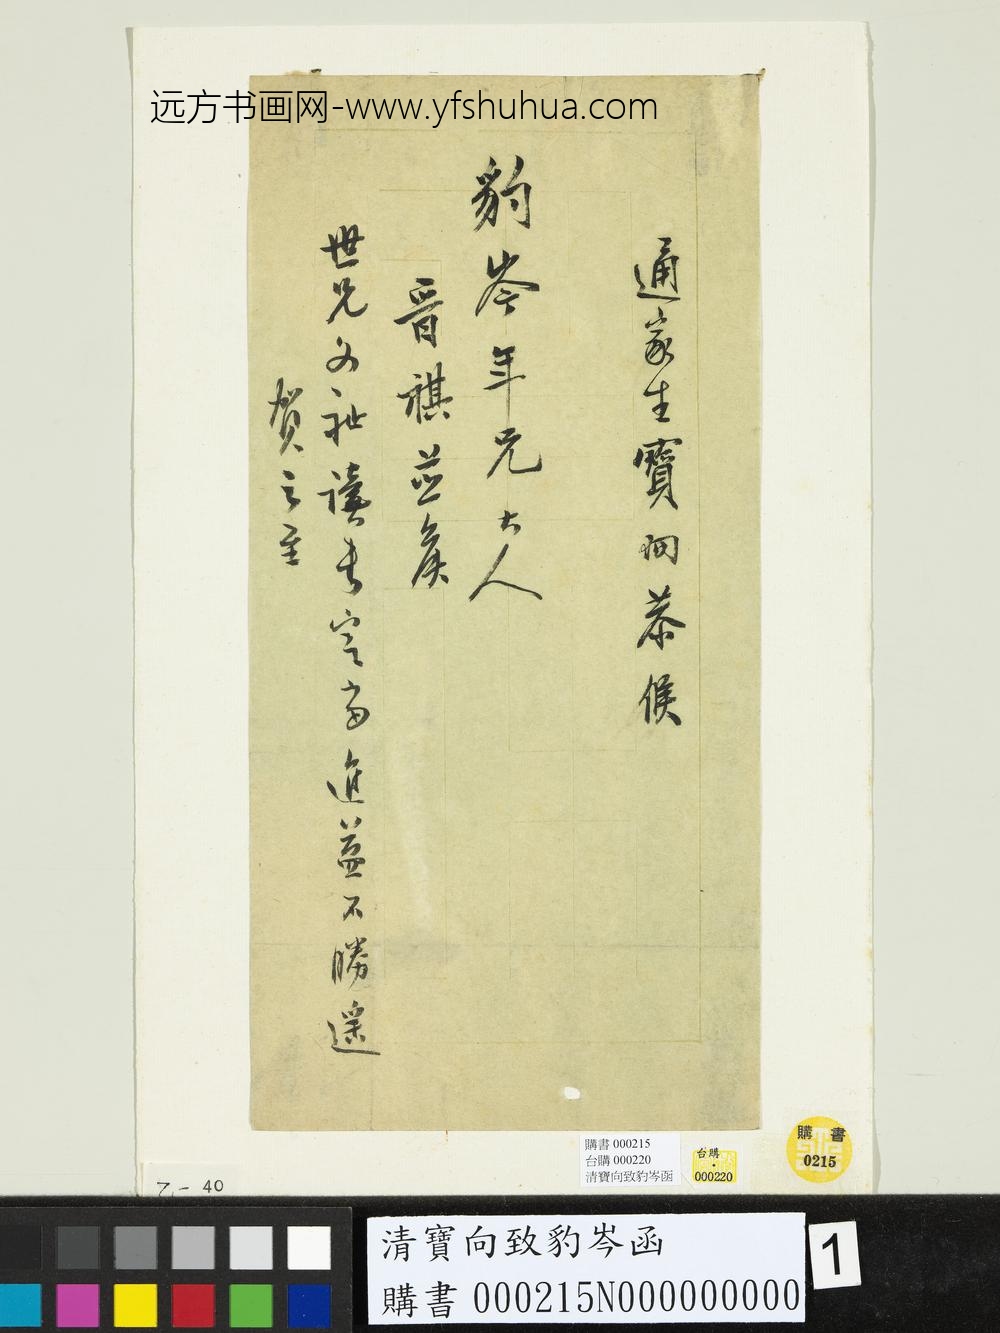 远方书画网-www.yfshuhua.com
通家生寶珣恭候
豹岑年兄大人
晉祺並矦
世兄文祉讀書定當進益不勝遥
賀之至
購書 000215
台購 000220
清寶向致豹岑函
台購
000220
購書
0215
乙-40
清寶向致豹岑函
購書 000215N000000000
1